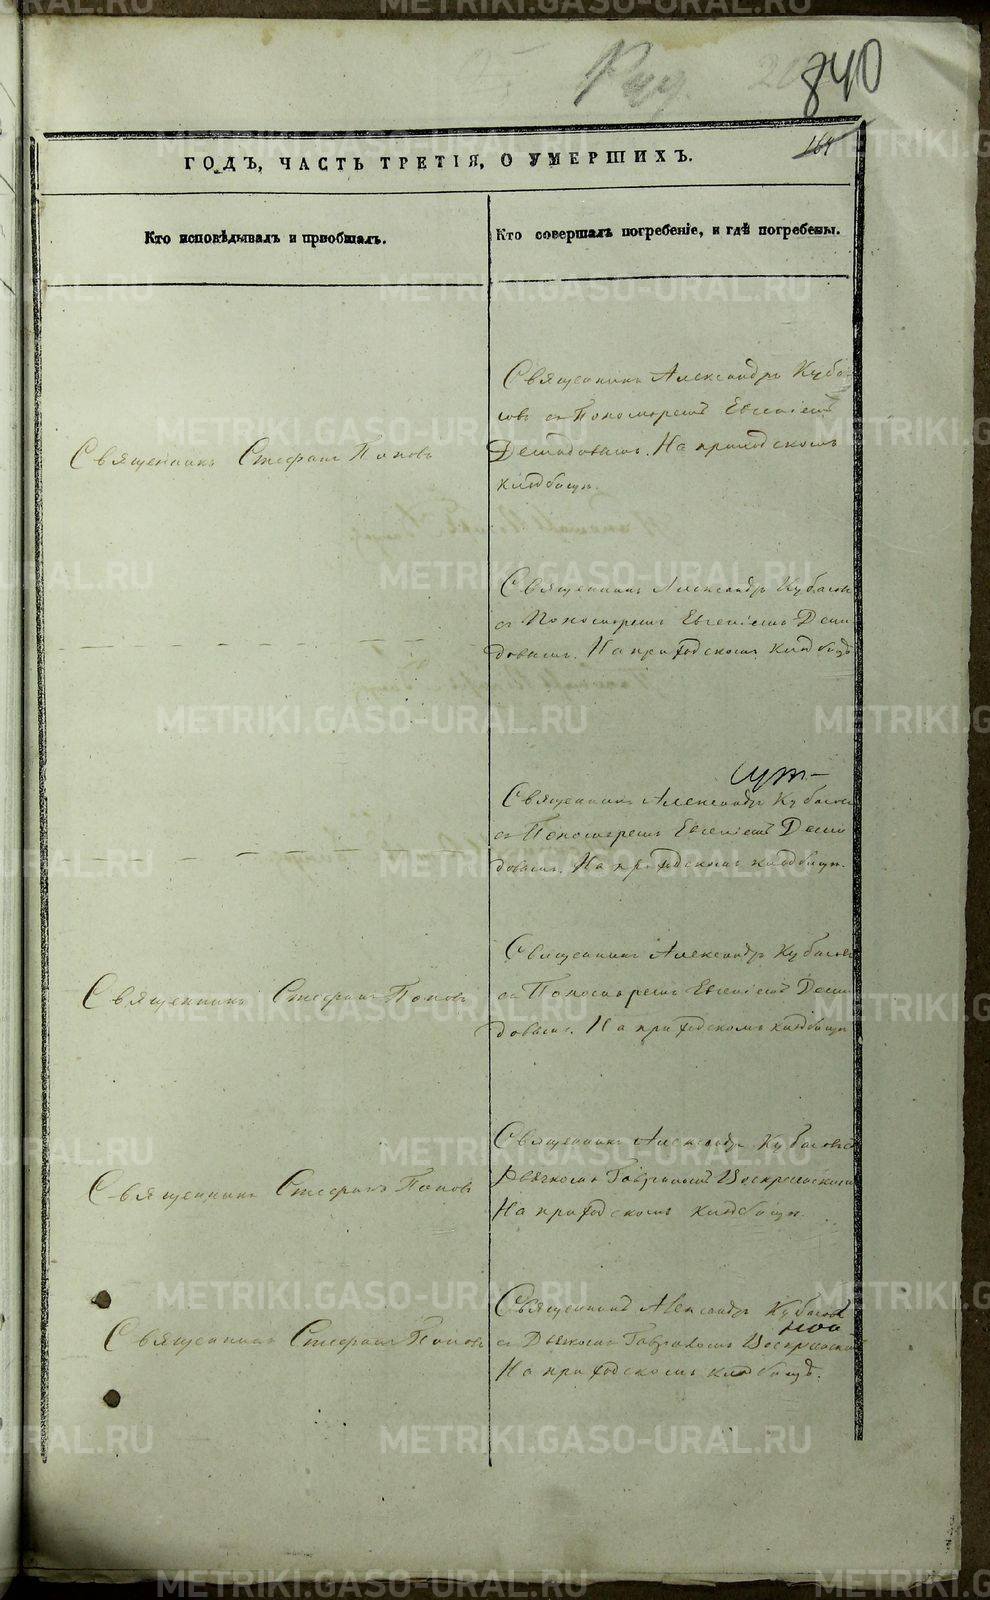 840
164
ГОДЪ, ЧАСТЬ ТРЕТІЯ, О УМЕРШИХЪ.
Кто исповѣдывалъ и пріобщалъ.
Кто совершалъ погребеніе, и гдѣ погребены.
Священникъ Стефанъ Поповъ
Священникъ Александръ Кубa
совъ съ Пономаремъ Евгеніемъ
Демидовымъ. На приходскомъ
кладбищѣ.
Священникъ Александръ Кубасовъ
съ Пономаремъ Евгеніемъ Деми
довымъ. На приходскомъ кладбищѣ
Священникъ Александръ Кубасовъ
съ Пономаремъ Евгеніемъ Деми
довымъ. На приходскомъ кладбищѣ.
Священникъ Стефанъ Поповъ
Священникъ Александръ Кубасовъ
съ Пономаремъ Евгеніемъ Деми
довымъ. На приходскомъ кладбищѣ
Священникъ Стефанъ Поповъ
Священникъ Александръ Кубасовъ
Дьякономъ Воскресенскимъ
На приходскомъ кладбищѣ.
Священникъ Стефанъ Поповъ
Священникъ Александръ Кубасовъ
съ Дьякономъ Воскресенскимъ
На приходскомъ кладбищѣ.
METRIKI.GASO-URAL.RU